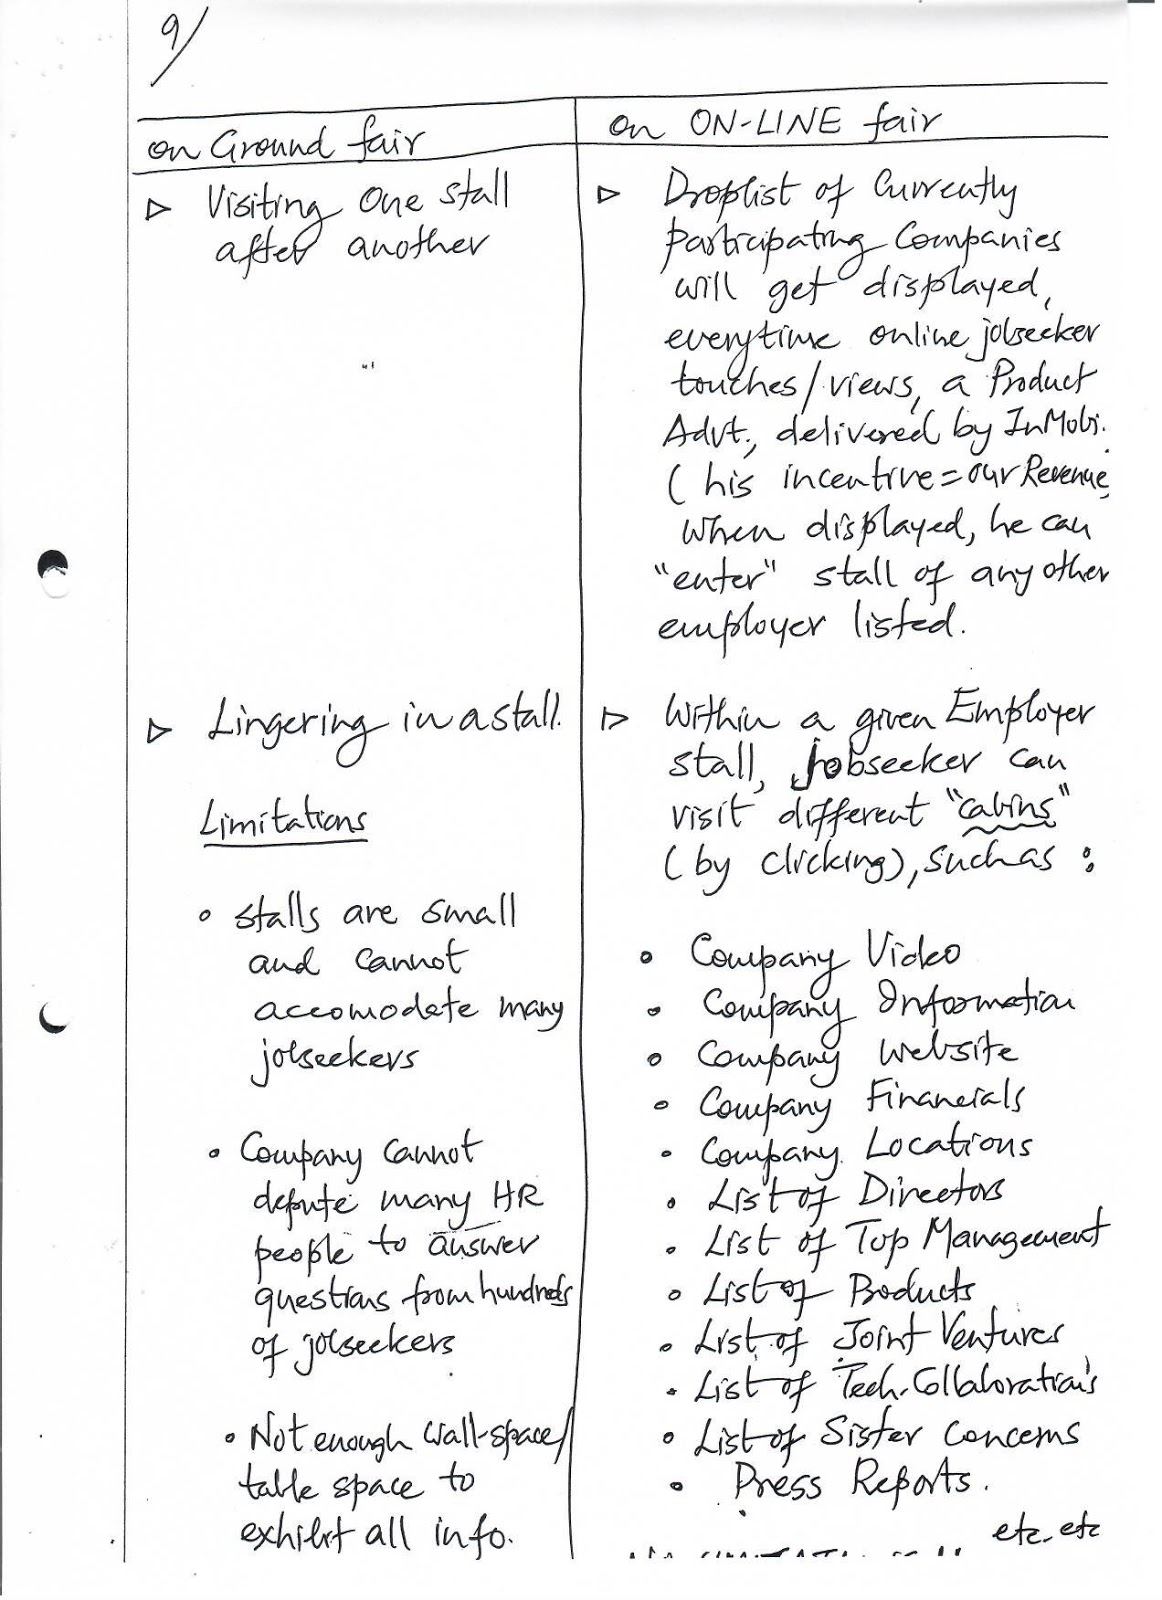 9/
on Ground fair
▷ Visiting One Stall
after another
▷ Lingering in a stall.
Limitations
• stalls are small
and cannot
accomodate many
jobseekers
• Company cannot
depute many HR
people to answer
questions from hundreds
of jobseekers
• Not enough wall-space/
table space to
exhibit all info.
on ON-LINE fair
▷ Droplist of Currently
Participating Companies
will get displayed,
everytime online jobseeker
touches/views, a Product
Advt., delivered by InMobi.
(his incentive = our Revenue)
When displayed, he can
"enter" stall of any other
employer listed.
▷ Within a given Employer
stall, jobseeker can
visit different "cabins"
(by clicking), such as :
• Company Video
• Company Information
• Company Website
• Company Financials
• Company Locations
• List of Directors
• List of Top Management
• List of Products
• List of Joint Ventures
• List of Tech. Collaborations
• List of Sister Concerns
• Press Reports.
etc. etc